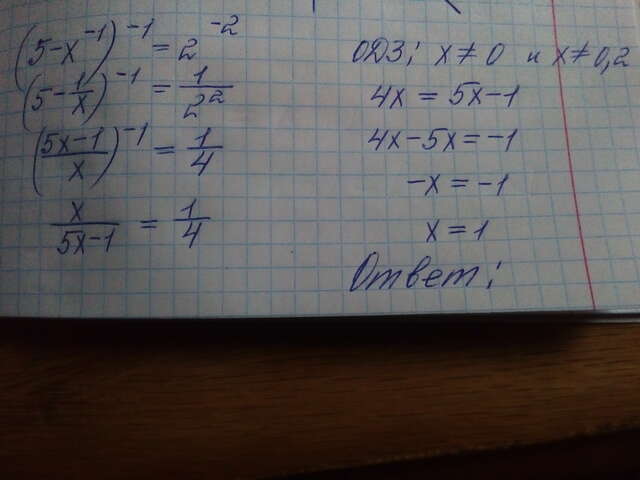 (5-x⁻¹)⁻¹ = 2⁻²
(5-1/x)⁻¹ = 1/2²
((5x-1)/x)⁻¹ = 1/4
x/(5x-1) = 1/4
ОДЗ: x≠0 и x≠0,2
4x = 5x-1
4x-5x=-1
-x = -1
x = 1
Ответ: